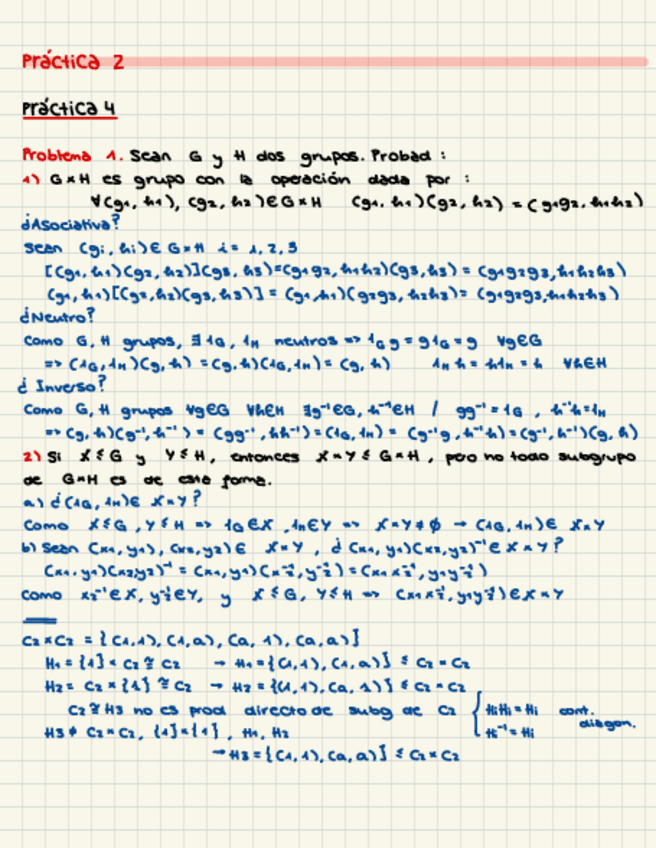 Práctica 2
Práctica 4
Problema 1. Sean G y H dos grupos. Probad :
1) G×H es grupo con la operación dada por :
∀(g1, h1), (g2, h2) ∈ G×H (g1, h1)(g2, h2) = (g1g2, h1h2)
¿Asociativa?
Sean (gi, hi) ∈ G×H i = 1, 2, 3
[(g1, h1)(g2, h2)](g3, h3) = (g1g2, h1h2)(g3, h3) = (g1g2g3, h1h2h3)
(g1, h1)[(g2, h2)(g3, h3)] = (g1, h1)(g2g3, h2h3) = (g1g2g3, h1h2h3)
¿Neutro?
Como G, H grupos, ∃ 1G, 1H neutros => 1G g = g1G = g ∀g∈G
=> (1G, 1H)(g, h) = (g, h)(1G, 1H) = (g, h) 1H h = h1H = h ∀h∈H
¿ Inverso?
Como G, H grupos ∀g∈G ∀h∈H ∃g⁻¹∈G, h⁻¹∈H / gg⁻¹ = 1G , h⁻¹h = 1H
=> (g, h)(g⁻¹, h⁻¹) = (gg⁻¹, hh⁻¹) = (1G, 1H) = (g⁻¹g, h⁻¹h) = (g⁻¹, h⁻¹)(g, h)
2) Si X ≤ G y Y ≤ H, entonces X×Y ≤ G×H, pero no todo subgrupo
de G×H es de esta forma.
a) ¿(1G, 1H) ∈ X×Y?
Como X ≤ G, Y ≤ H => 1G∈X, 1H∈Y => X×Y ≠ ∅ → (1G, 1H) ∈ X×Y
b) Sean (x1, y1), (x2, y2) ∈ X×Y , ¿(x1, y1)(x2, y2)⁻¹ ∈ X×Y?
(x1, y1)(x2, y2)⁻¹ = (x1, y1)(x2⁻¹, y2⁻¹) = (x1x2⁻¹, y1y2⁻¹)
Como x2⁻¹∈X, y2⁻¹∈Y, y X ≤ G, Y ≤ H => (x1x2⁻¹, y1y2⁻¹) ∈ X×Y
C2×C2 = {(1,1), (1,a), (a,1), (a,a)}
H1 = {1} × C2 ≅ C2 → H1 = {(1,1), (1,a)} ≤ C2×C2
H2 = C2 × {1} ≅ C2 → H2 = {(1,1), (a,1)} ≤ C2×C2
C2 ≅ H3 no es prod directo de subg de C2 { HiHi = Hi cont.
H3 ≠ C2×C2, {1}×{1}, H1, H2 Hi⁻¹ = Hi diagon.
→ H3 = {(1,1), (a,a)} ≤ C2×C2